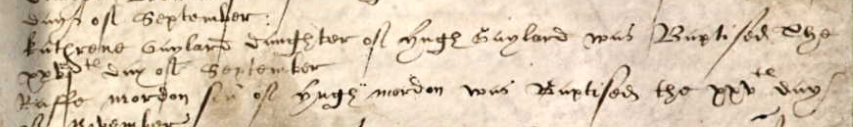 day of September:
Kathrene Gaylard daughter of Hugh Gaylard was Baptised the
xxvth day of September
Raffe mordon son of Hugh mordon was Baptised the xxvth day
of November